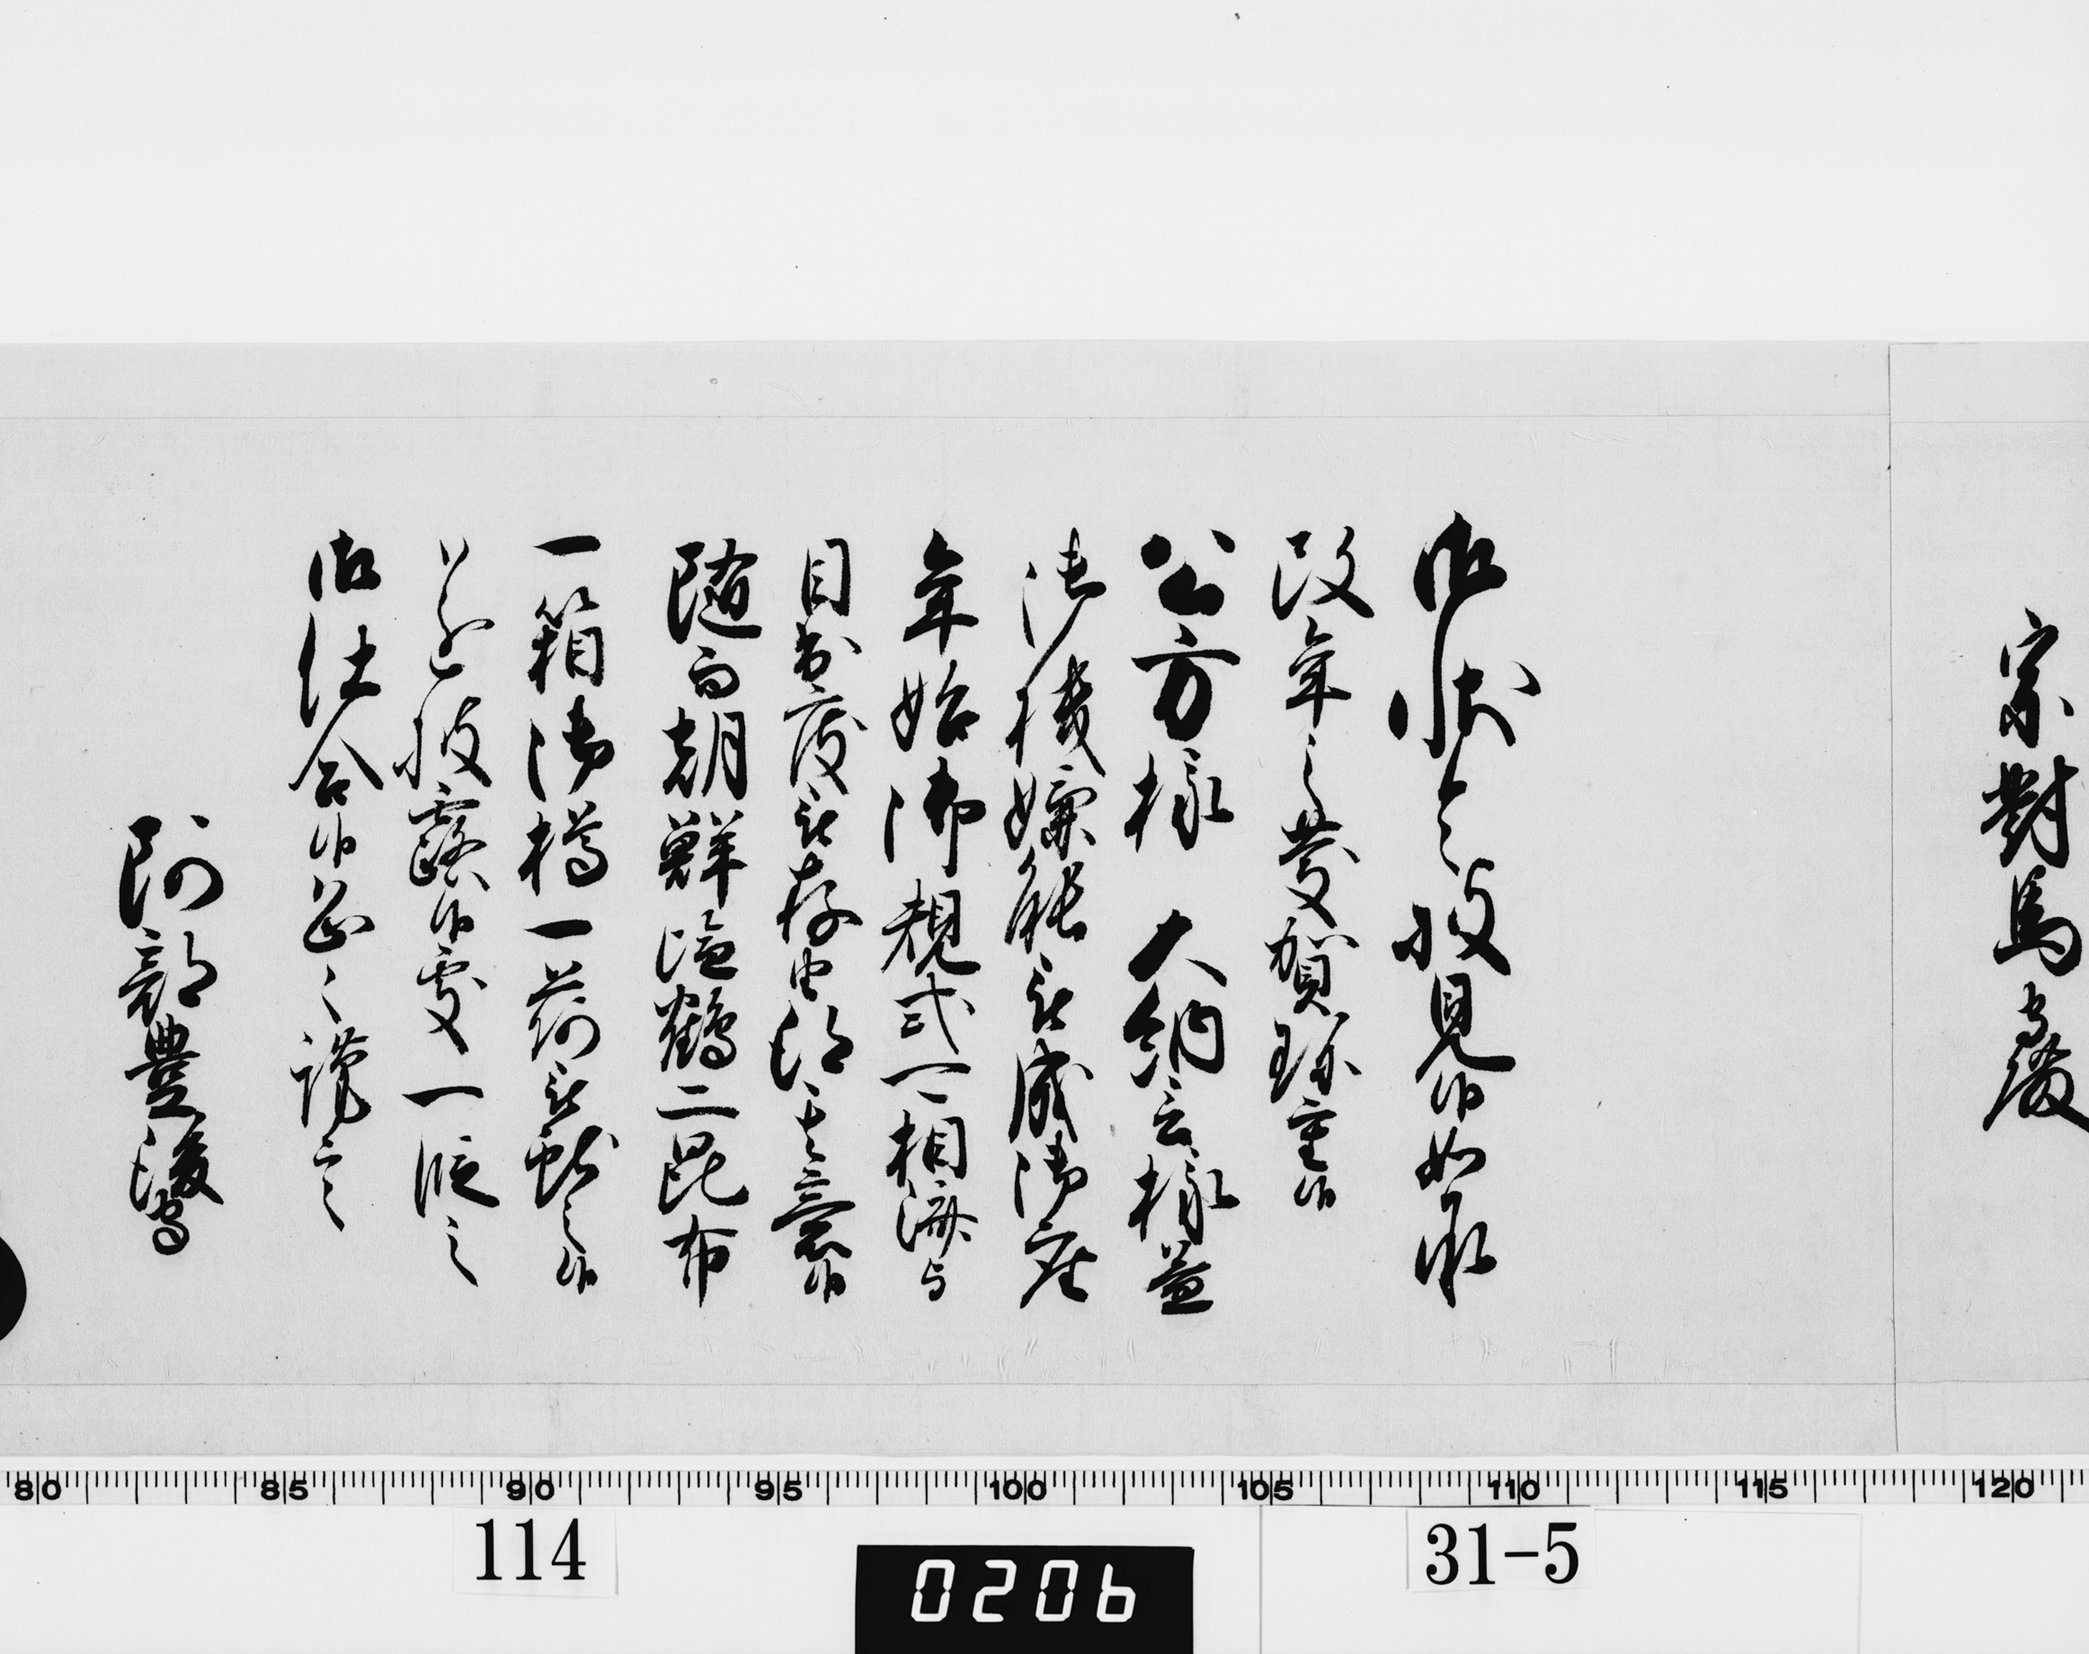 宗對馬守殿
御状令披見候如承
改年之慶賀珍重候
公方様 大納言様益
御機嫌能被成御座
年始御規式可相済与
目出度被存由得其意候
随而朝鮮塩鶴二昆布
一箱御樽一荷被献之候
遂披露候處一段之
御仕合候恐々謹言
阿部豊後守
80 85 90 95 100 105 110 115 120
114
0206
31-5